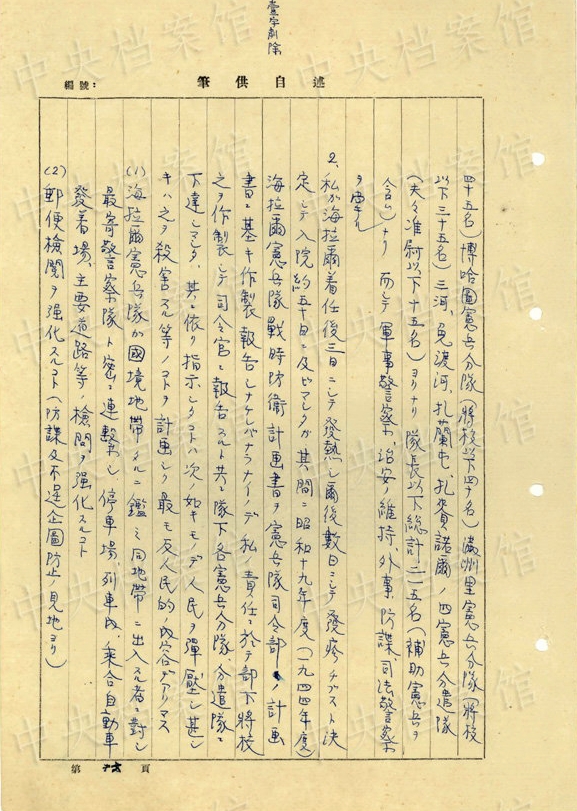 壹字削除
編號：
筆供自述
四十五名）博哈圖憲兵分隊（將校以下四十名）滿洲里憲兵分隊（將校
以下三十五名）三河、免渡河、扎蘭屯、扎賚諾爾ノ四憲兵分遣隊
（夫々准尉以下十五名）ヨリナリ 隊長以下總計二一五名（補助憲兵ヲ
含ム）ナリ 而シテ軍事警察、治安ノ維持、外事、防諜、司法警察
2、私ガ海拉爾着任後三日ニシテ發熱シ爾後數日ニシテ發疹チブスト決
定シテ入院約五十日ニ及ビマシタガ其ノ間ニ昭和十九年度（一九四四年度）
海拉爾憲兵隊戰時防衛計画書ヲ憲兵隊司令部ノ計画
書ニ基キ作製報告シナケレバナラナイノデ私ノ責任ニ於テ部下將校
之ヲ作製シテ司令官ニ報告スルト共ニ隊下各憲兵分隊、分遣隊ニ
下達シマシタ、其ニ依リ指示シタコトハ次ノ如キモノデ人民ヲ彈壓シ甚シ
キハ之ヲ殺害スル等ノコトヲ計画シタ最モ反人民的ノ內容デアリマス
(1) 海拉爾憲兵隊ガ國境地帶ナルニ鑑ミ同地帶ニ出入スル者ニ對シ
最寄警察隊ト密ニ連繫シ、停車場、列車內、乘合自動車
發着場、主要道路等ノ檢問ヲ強化スルコト
(2) 郵便檢閱ヲ強化スルコト（防諜及不逞企圖防止ノ見地ヨリ）
第 頁
中央档案馆